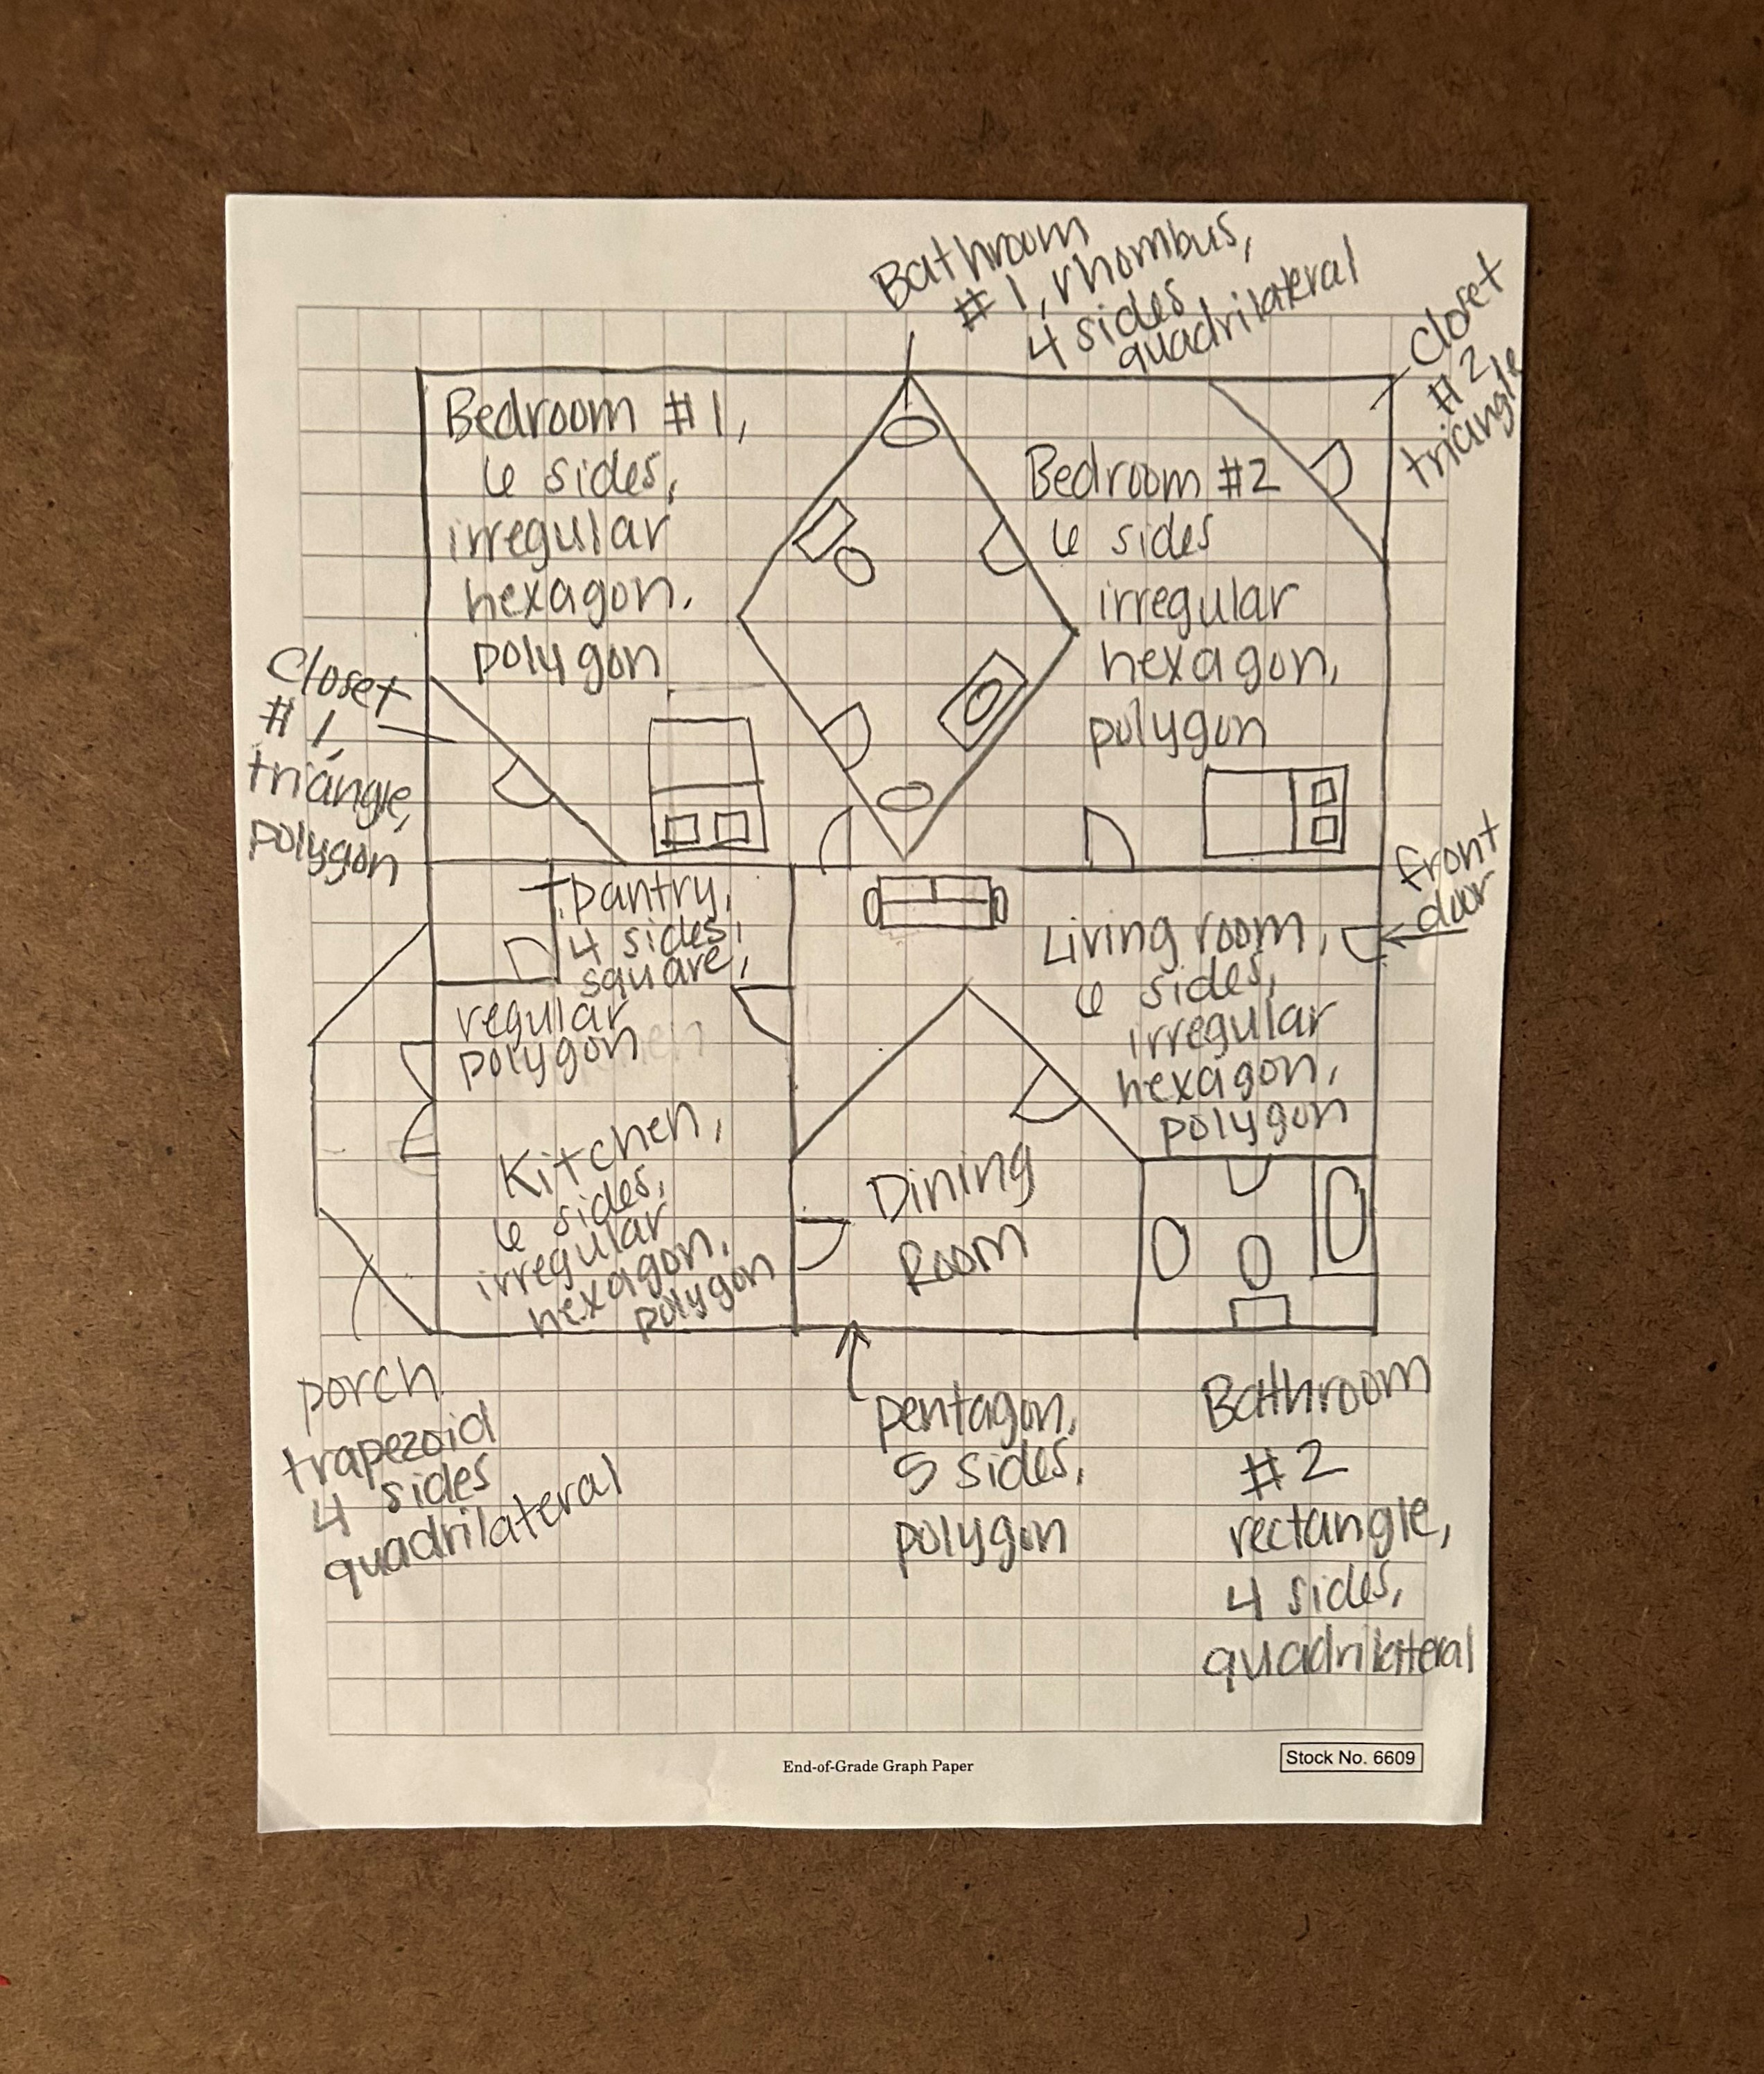 Bathroom
#1, rhombus,
4 sides
quadrilateral
Closet
#2
triangle
Bedroom #1,
6 sides,
irregular
hexagon,
polygon
Bedroom #2
6 sides
irregular
hexagon,
polygon
Closet
#1,
triangle,
polygon
front
door
pantry,
4 sides,
square,
regular
polygon
Living room,
6 sides,
irregular
hexagon,
polygon
Kitchen,
6 sides,
irregular
hexagon,
polygon
Dining
Room
porch
trapezoid
4 sides
quadrilateral
pentagon,
5 sides,
polygon
Bathroom
#2
rectangle,
4 sides,
quadrilateral
End-of-Grade Graph Paper
Stock No. 6609